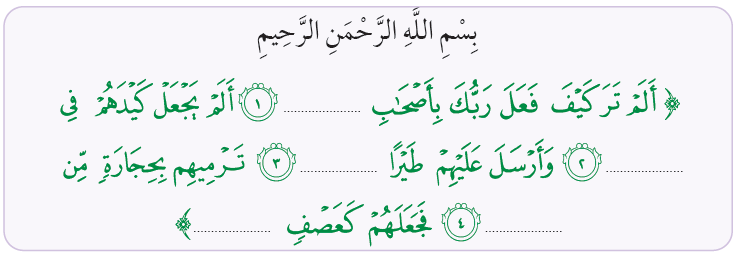 بِسْمِ اللَّهِ الرَّحْمَنِ الرَّحِيمِ
﴿ أَلَمْ تَرَ كَيْفَ فَعَلَ رَبُّكَ بِأَصْحَٰبِ .................... ١ أَلَمْ يَجْعَلْ كَيْدَهُمْ فِي
.................... ٢ وَأَرْسَلَ عَلَيْهِمْ طَيْرًا .................... ٣ تَرْمِيهِم بِحِجَارَةٍ مِّن
.................... ٤ فَجَعَلَهُمْ كَعَصْفٍ .................... ﴾